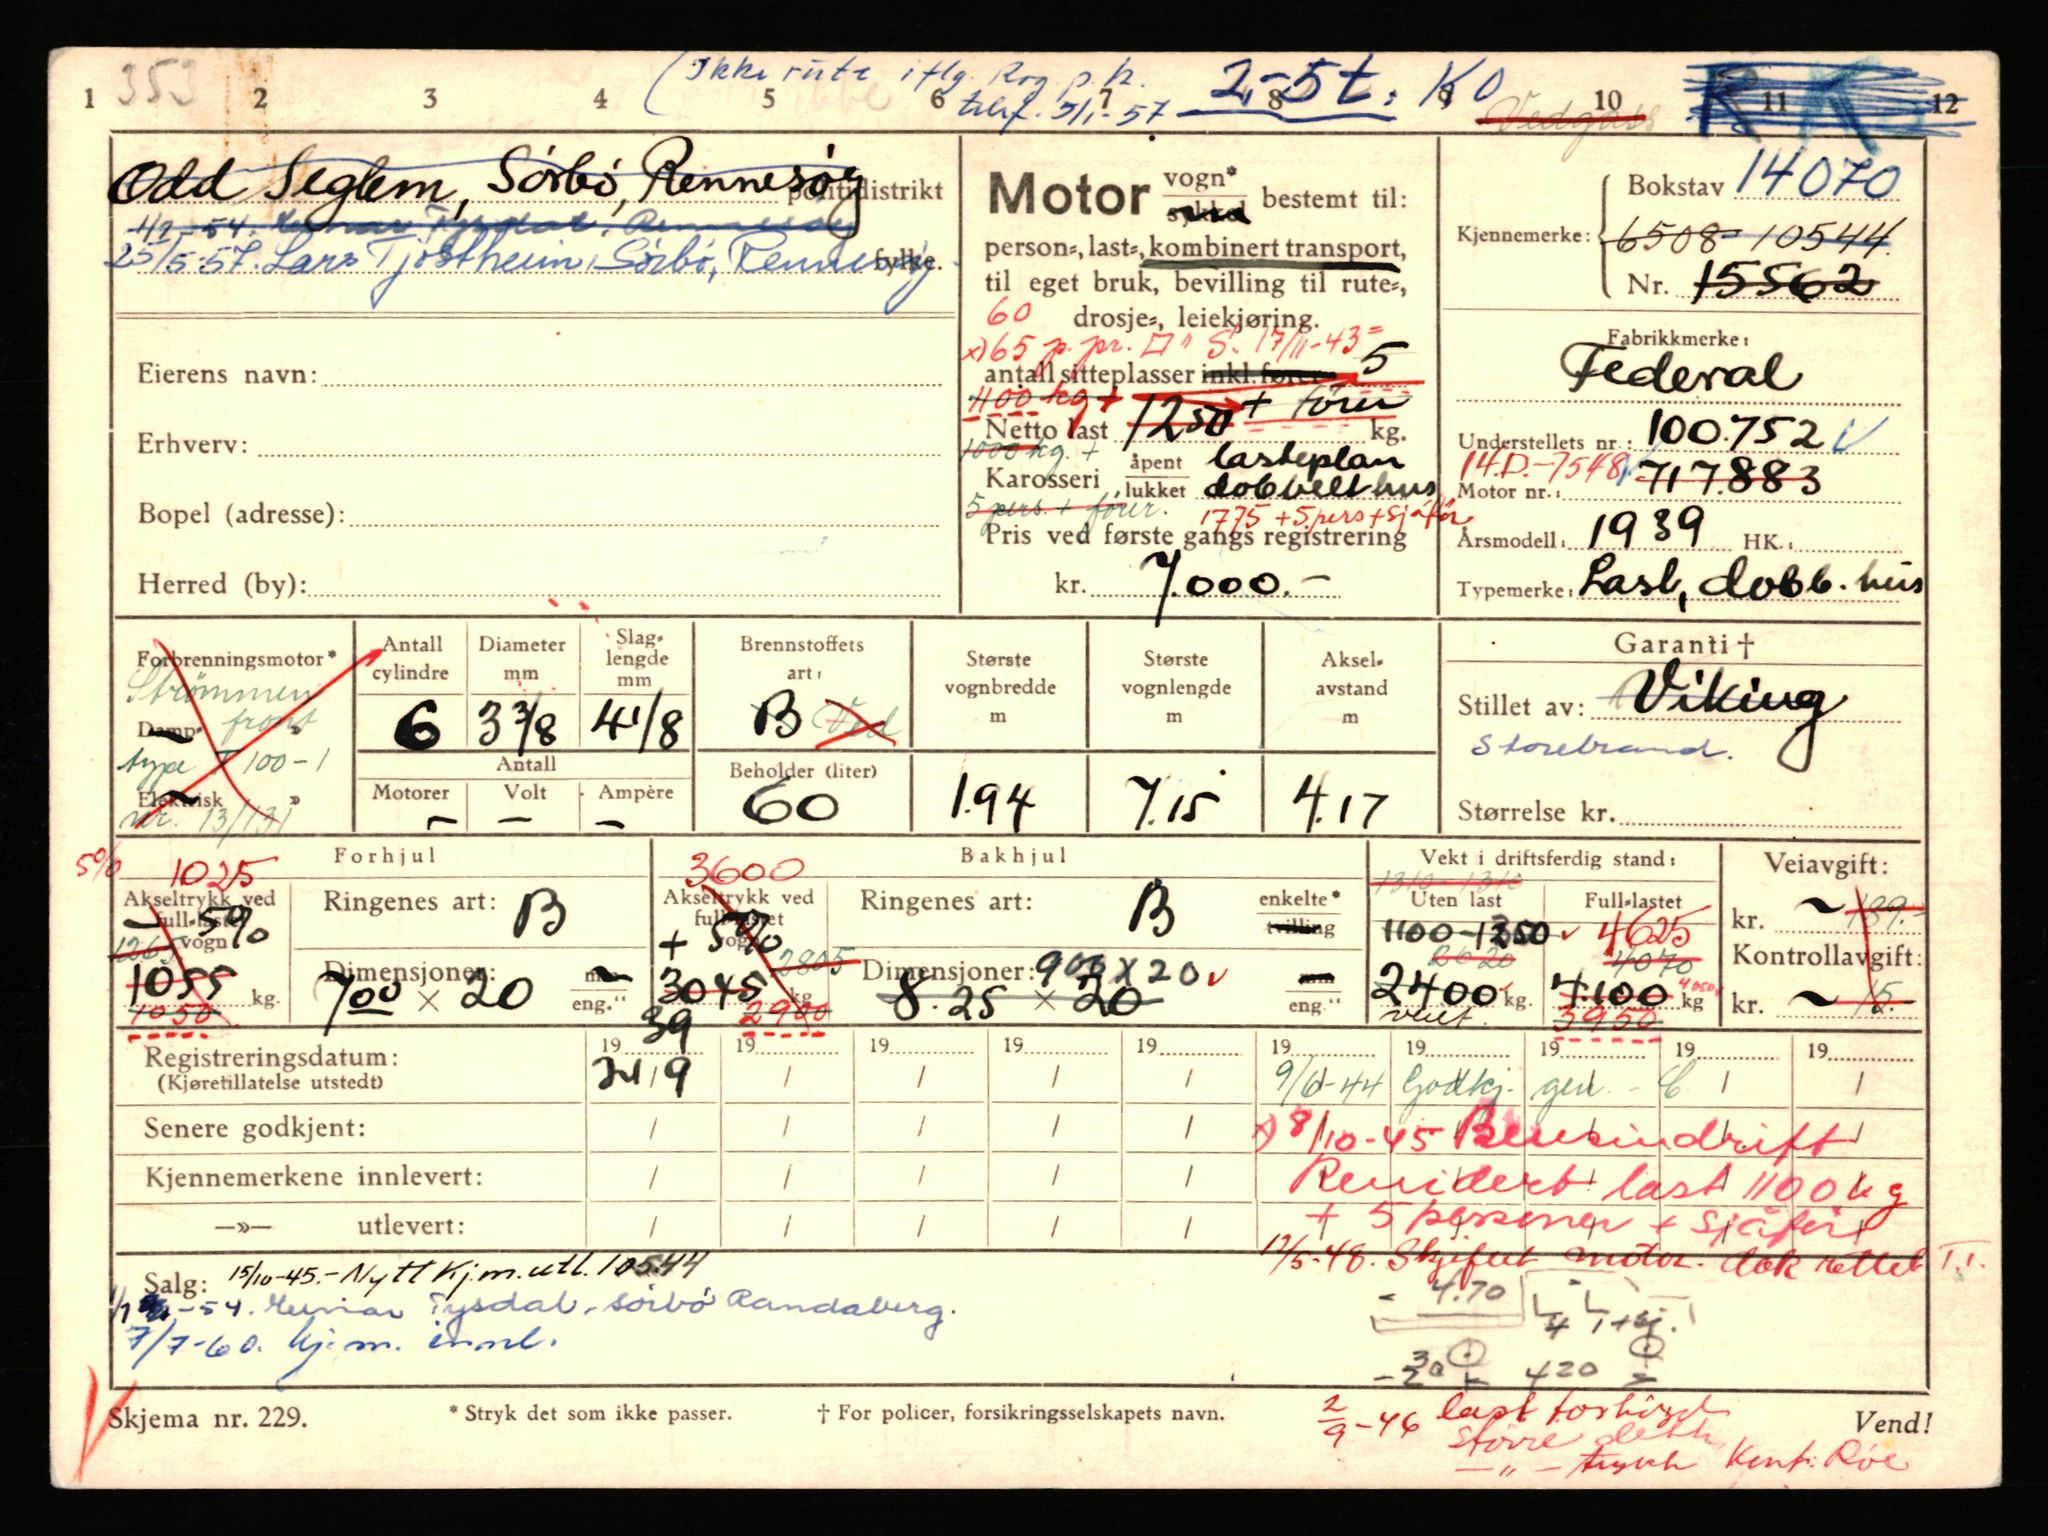 353
1 2 3 4 5 6 7 8 9 10 11 12
(Ikke rute iflg. Rog. p. k.
5/1-57
2,-5t. KO
Vedgass
R K
Odd Seglem, Sørbø, Rennesøy politidistrikt
1/2-54. Tysdal, Rennesøy
25/5-57. Lars Tjøstheim, Sørbø, Rennesøy fylke.
Eierens navn:
Erhverv:
Bopel (adresse):
Herred (by):
Motor vogn* sykkel bestemt til:
person-, last-, kombinert transport,
til eget bruk, bevilling til rute-,
60 drosje-, leiekjøring.
x) 65 p. pr. □" S. 17/11-43
antall sitteplasser inkl. fører 5
1100 kg + + fører
Netto last 1250 kg.
1000 kg. +
Karosseri åpent lasteplan
lukket dobbelt hus
5 pers. + fører. 1775 + 5 pers + sjåfør
Pris ved første gangs registrering
kr. 7.000.-
Bokstav 14070
Kjennemerke: 6508- 10544
Nr. 15562
Fabrikkmerke:
Federal
Understellets nr.: 100.752
14.D.-7548
Motor nr.: 717.883
Årsmodell: 1939 HK.:
Typemerke: Last, dobb. hus
Forbrenningsmotor*
Strømmen
front
Damp- "
type T 100-1
Elektrisk "
nr. 13/131
Antall cylindre
6
Diameter mm
3 3/8
Slag-lengde mm
4 1/8
Antall
Motorer Volt Ampère
- - -
Brennstoffets art:
B Ved
Beholder (liter)
60
Største vognbredde m
1.94
Største vognlengde m
7.15
Aksel-avstand m
4.17
Garanti †
Stillet av: Viking
Storebrand.
Størrelse kr.
Forhjul
5% 1025
Akseltrykk ved full-lastet vogn
- 5%
1265
1055 kg.
1050
Ringenes art: B
Dimensjoner: mm
700 × 20 eng."
Bakhjul
3600
Akseltrykk ved full-lastet vogn
+ 5%
2805
3045 kg
2900
Ringenes art: B enkelte*
tvilling
Dimensjoner: 900 x 20 mm
8.25 × 20 eng."
Vekt i driftsferdig stand:
1310-1310
Uten last Full-lastet
1100-1350 4625
2620 4070
2400 kg. 7.100 kg 4050
veiet. 3950
Veiavgift:
kr. 189.-
Kontrollavgift:
kr. 15.-
Registreringsdatum:
(Kjøretillatelse utstedt)
19 39 19 19 19 19 19 19 19 19 19
24/9
9/6-44 Godkj. gen. - C
Senere godkjent:
x) 8/10-45 Bensindrift
Kjennemerkene innlevert:
Revidert last 1100 kg
—»— utlevert:
+ 5 personer + sjåfør
12/5-48. Skiftet motor. dok rettet T.T.
Salg: 15/10-45.- Nytt kj.m. utl. 10544
-54. Tysdal, Sørbø Randaberg.
7/7-60. kj.m. innl.
4.70
4 1+sj.
30
-20 420
Skjema nr. 229. * Stryk det som ikke passer. † For policer, forsikringsselskapets navn. Vend!
2/9-46 last forhøyd
større dekk
— " — trykk Kent. Röe